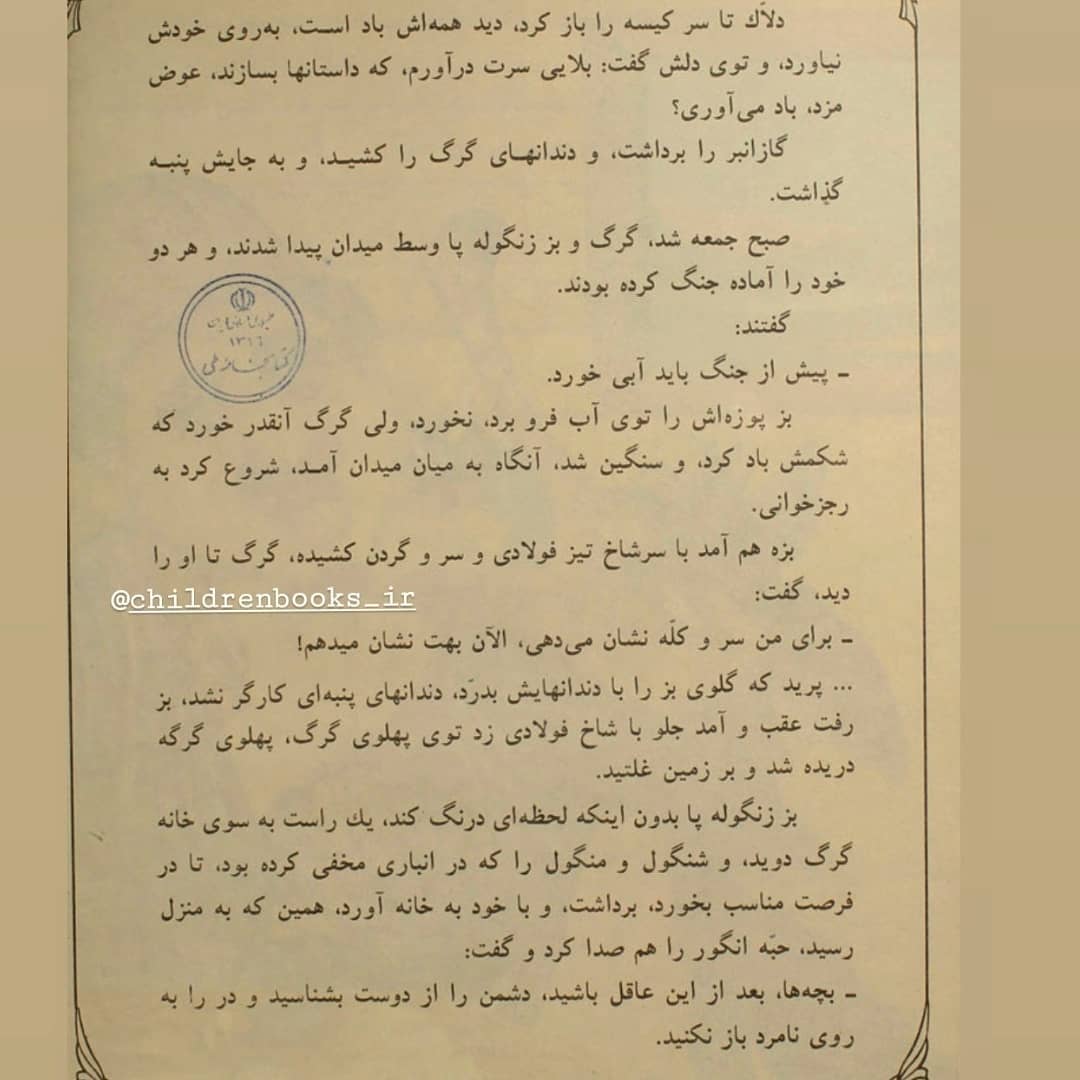 دلاّك تا سر کیسه را باز کرد، دید همه‌اش باد است، به‌روی خودش
نیاورد، و توی دلش گفت: بلایی سرت درآورم، که داستانها بسازند، عوض
مزد، باد می‌آوری؟
گازانبر را برداشت، و دندانهای گرگ را کشید، و به جایش پنبه
گذاشت.
صبح جمعه شد، گرگ و بز زنگوله پا وسط میدان پیدا شدند، و هر دو
خود را آماده جنگ کرده بودند.
گفتند:
ـ پیش از جنگ باید آبی خورد.
بز پوزه‌اش را توی آب فرو برد، نخورد، ولی گرگ آنقدر خورد که
شکمش باد کرد، و سنگین شد، آنگاه به میان میدان آمد، شروع کرد به
رجزخوانی.
بزه هم آمد با سرشاخ تیز فولادی و سر و گردن کشیده، گرگ تا او را
دید، گفت:
ـ برای من سر و کلّه نشان می‌دهی، الآن بهت نشان میدهم!
... پرید که گلوی بز را با دندانهایش بدرّد، دندانهای پنبه‌ای کارگر نشد، بز
رفت عقب و آمد جلو با شاخ فولادی زد توی پهلوی گرگ، پهلوی گرگه
دریده شد و بر زمین غلتید.
بز زنگوله پا بدون اینکه لحظه‌ای درنگ کند، یك راست به سوی خانه
گرگ دوید، و شنگول و منگول را که در انباری مخفی کرده بود، تا در
فرصت مناسب بخورد، برداشت، و با خود به خانه آورد، همین که به منزل
رسید، حبّه انگور را هم صدا کرد و گفت:
ـ بچه‌ها، بعد از این عاقل باشید، دشمن را از دوست بشناسید و در را به
روی نامرد باز نکنید.
جمهوری اسلامی ایران
۱۳۱۶
کتابخانه ملی
@childrenbooks_ir